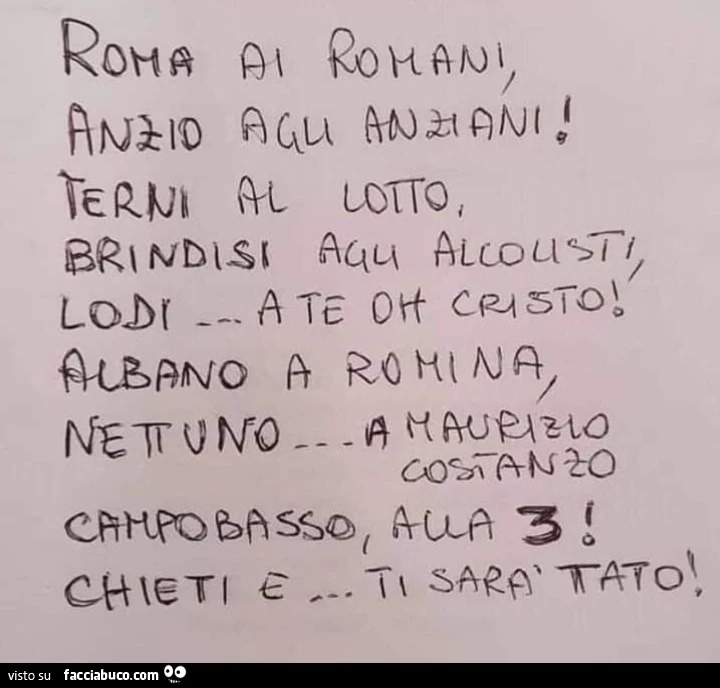 ROMA AI ROMANI,
ANZIO AGLI ANZIANI!
TERNI AL LOTTO,
BRINDISI AGLI ALCOLISTI,
LODI ... A TE OH CRISTO!
ALBANO A ROMINA,
NETTUNO ... A MAURIZIO
COSTANZO
CAMPOBASSO, ALLA 3!
CHIETI E ... TI SARA' TATO!
visto su facciabuco.com